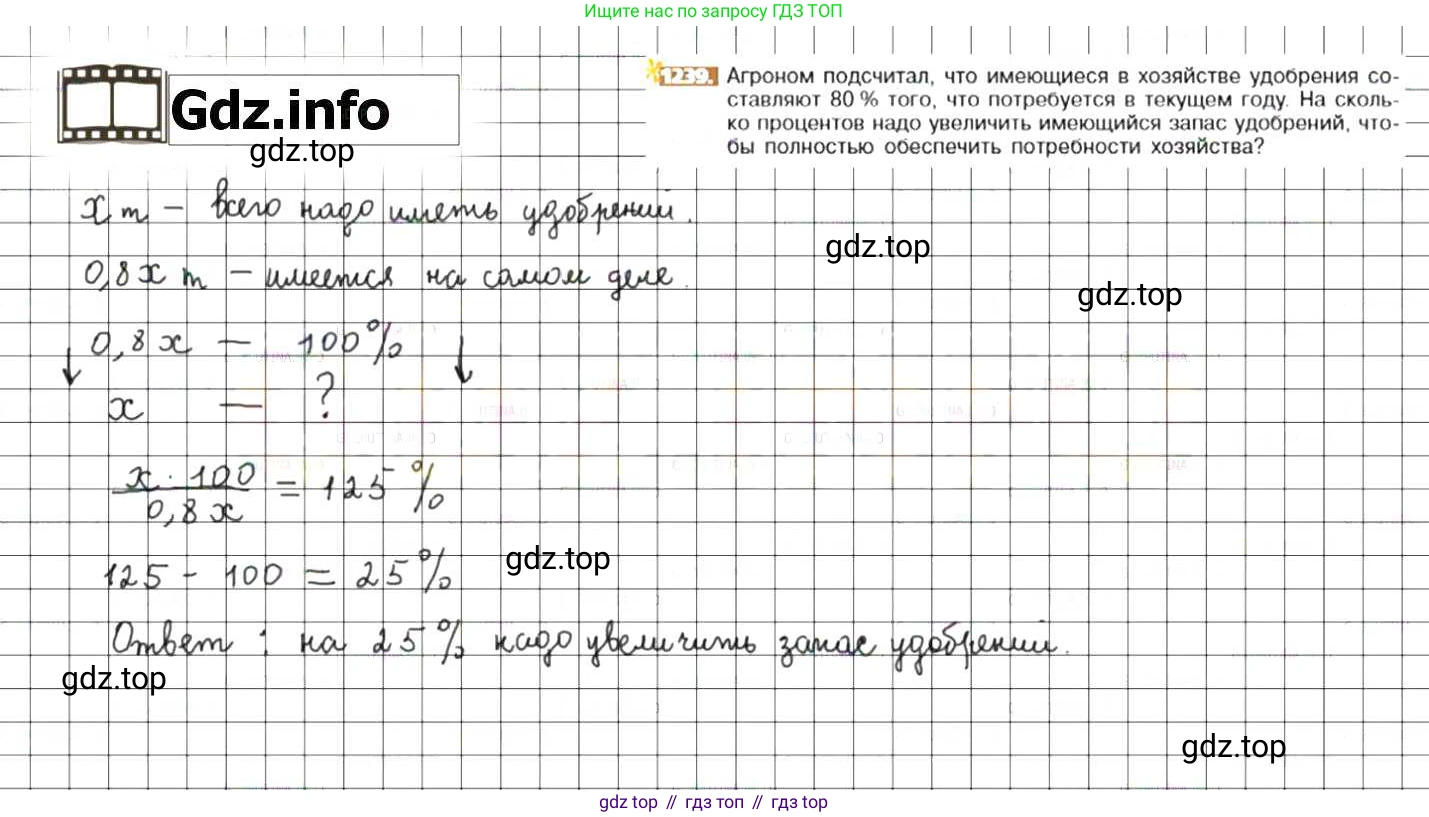 Ищите нас по запросу ГДЗ ТОП
Gdz.info
gdz.top
1239. Агроном подсчитал, что имеющиеся в хозяйстве удобрения со-
ставляют 80 % того, что потребуется в текущем году. На сколь-
ко процентов надо увеличить имеющийся запас удобрений, что-
бы полностью обеспечить потребности хозяйства?
x т – всего надо иметь удобрений.
gdz.top
0,8x т – имеется на самом деле.
gdz.top
0,8x — 100%
x — ?
x · 100
0,8x
= 125 %
gdz.top
125 - 100 = 25%
Ответ: на 25% надо увеличить запас удобрений.
gdz.top
gdz.top
gdz top // гдз топ // gdz top